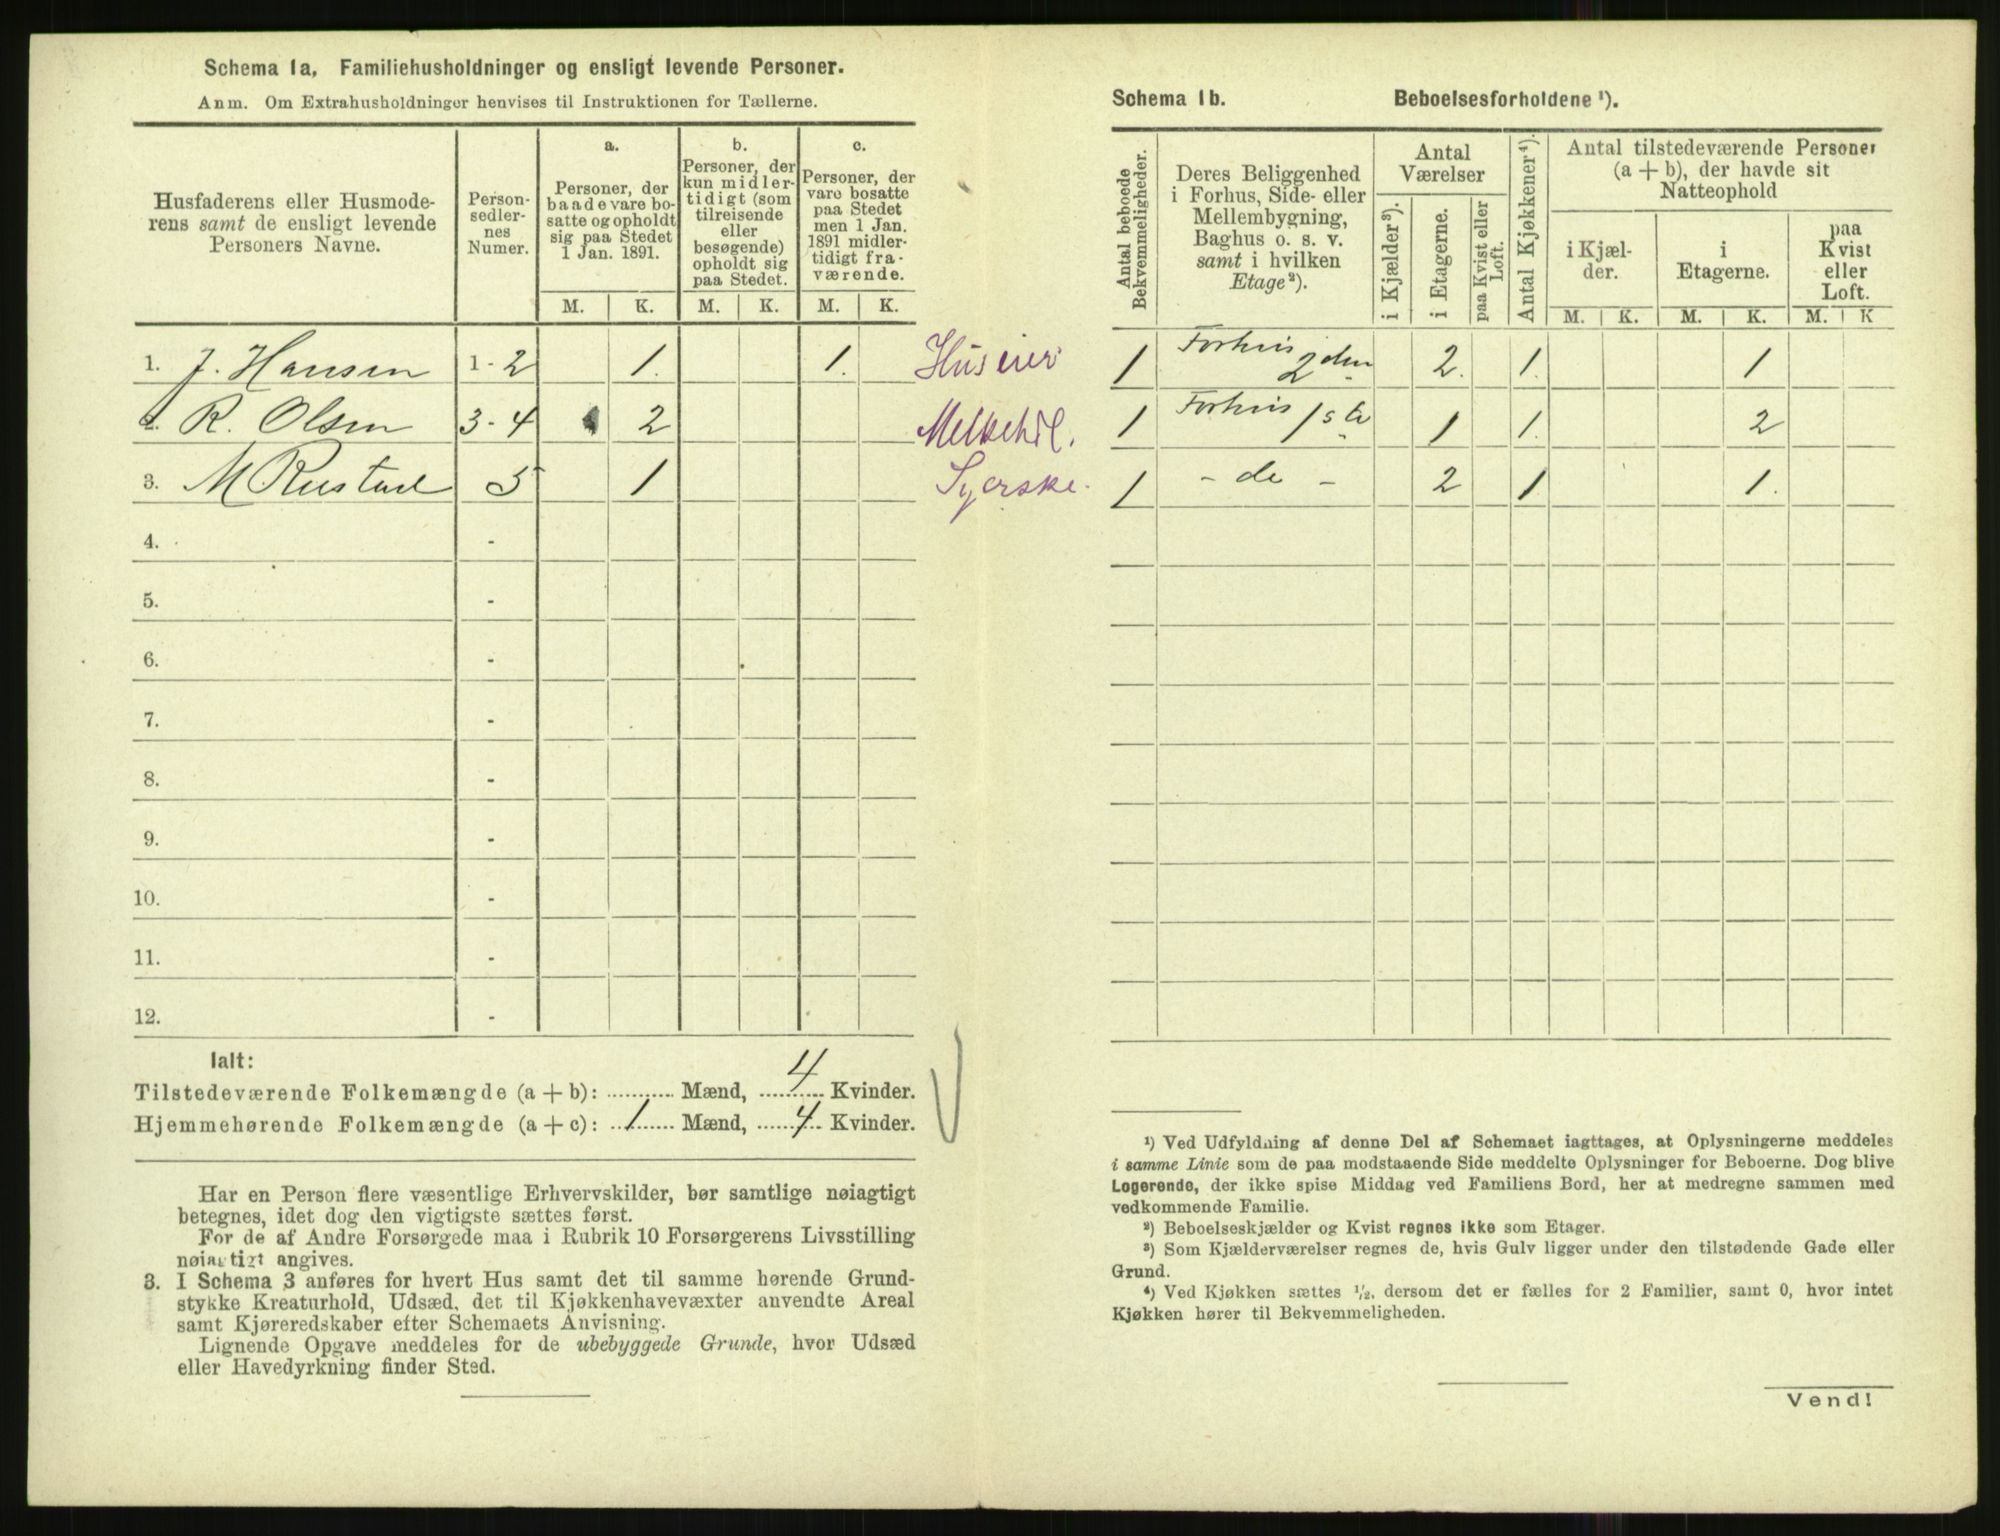 Schema 1a. Familiehusholdninger og ensligt levende Personer.
Anm. Om Extrahusholdninger henvises til Instruktionen for Tællerne.
Husfaderens eller Husmode-
rens samt de ensligt levende
Personers Navne.
Person-
sedler-
nes
Numer.
a.
Personer, der
baade vare bo-
satte og opholdt
sig paa Stedet
1 Jan. 1891.
b.
Personer, der
kun midler-
tidigt (som
tilreisende
eller
besøgende)
opholdt sig
paa Stedet.
c.
Personer, der
vare bosatte
paa Stedet
men 1 Jan.
1891 midler-
tidigt fra-
værende.
M. K. M. K. M. K.
1. J. Hansen 1-2 1. 1. Huseier
2. R. Olsen 3-4 2
3. M Rustad 5 1 Syerske.
4. -
5. -
6. -
7. -
8. -
9. -
10. -
11. -
12. -
Ialt:
Tilstedeværende Folkemængde (a + b): Mænd, 4 Kvinder.
Hjemmehørende Folkemængde (a + c): 1 Mænd, 4 Kvinder.
Har en Person flere væsentlige Erhvervskilder, bør samtlige nøiagtigt
betegnes, idet dog den vigtigste sættes først.
For de af Andre Forsørgede maa i Rubrik 10 Forsørgerens Livsstilling
nøiagtigt angives.
3. I Schema 3 anføres for hvert Hus samt det til samme hørende Grund-
stykke Kreaturhold, Udsæd, det til Kjøkkenhavevæxter anvendte Areal
samt Kjøreredskaber efter Schemaets Anvisning.
Lignende Opgave meddeles for de ubebyggede Grunde, hvor Udsæd
eller Havedyrkning finder Sted.
Schema 1b. Beboelsesforholdene ¹).
Antal beboede
Bekvemmeligheder.
Deres Beliggenhed
i Forhus, Side- eller
Mellembygning,
Baghus o. s. v.
samt i hvilken
Etage²).
Antal
Værelser
i Kjælder³).
i Etagerne.
paa Kvist eller
Loft.
Antal Kjøkkener⁴).
Antal tilstedeværende Personer
(a + b), der havde sit
Natteophold
i Kjæl-
der.
i
Etagerne.
paa
Kvist
eller
Loft.
M. K. M. K. M. K
1 Forhus 2den 2. 1. 1
1 Forhus 1ste 1 1. 2
1 - do - 2 1 1.
¹) Ved Udfyldning af denne Del af Schemaet iagttages, at Oplysningerne meddeles
i samme Linie som de paa modstaaende Side meddelte Oplysninger for Beboerne. Dog blive
Logerende, der ikke spise Middag ved Familiens Bord, her at medregne sammen med
vedkommende Familie.
²) Beboelseskjælder og Kvist regnes ikke som Etager.
³) Som Kjælderværelser regnes de, hvis Gulv ligger under den tilstødende Gade eller
Grund.
⁴) Ved Kjøkken sættes ½, dersom det er fælles for 2 Familier, samt 0, hvor intet
Kjøkken hører til Bekvemmeligheden.
Vend!